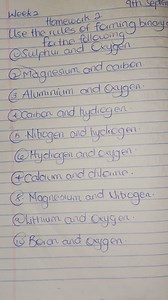 Week 2
9th Septem
Homework 2
Use the rules of forming binary
for the following
① Sulphur and Oxygen
② Magnesium and carbon
③ Aluminium and Oxygen
④ Carbon and hydrogen
⑤ Nitrogen and hydrogen
⑥ Hydrogen and Oxygen
⑦ Calcium and chlorine
⑧ Magnesium and Nitrogen
⑨ Lithium and Oxygen
⑩ Boron and Oxygen